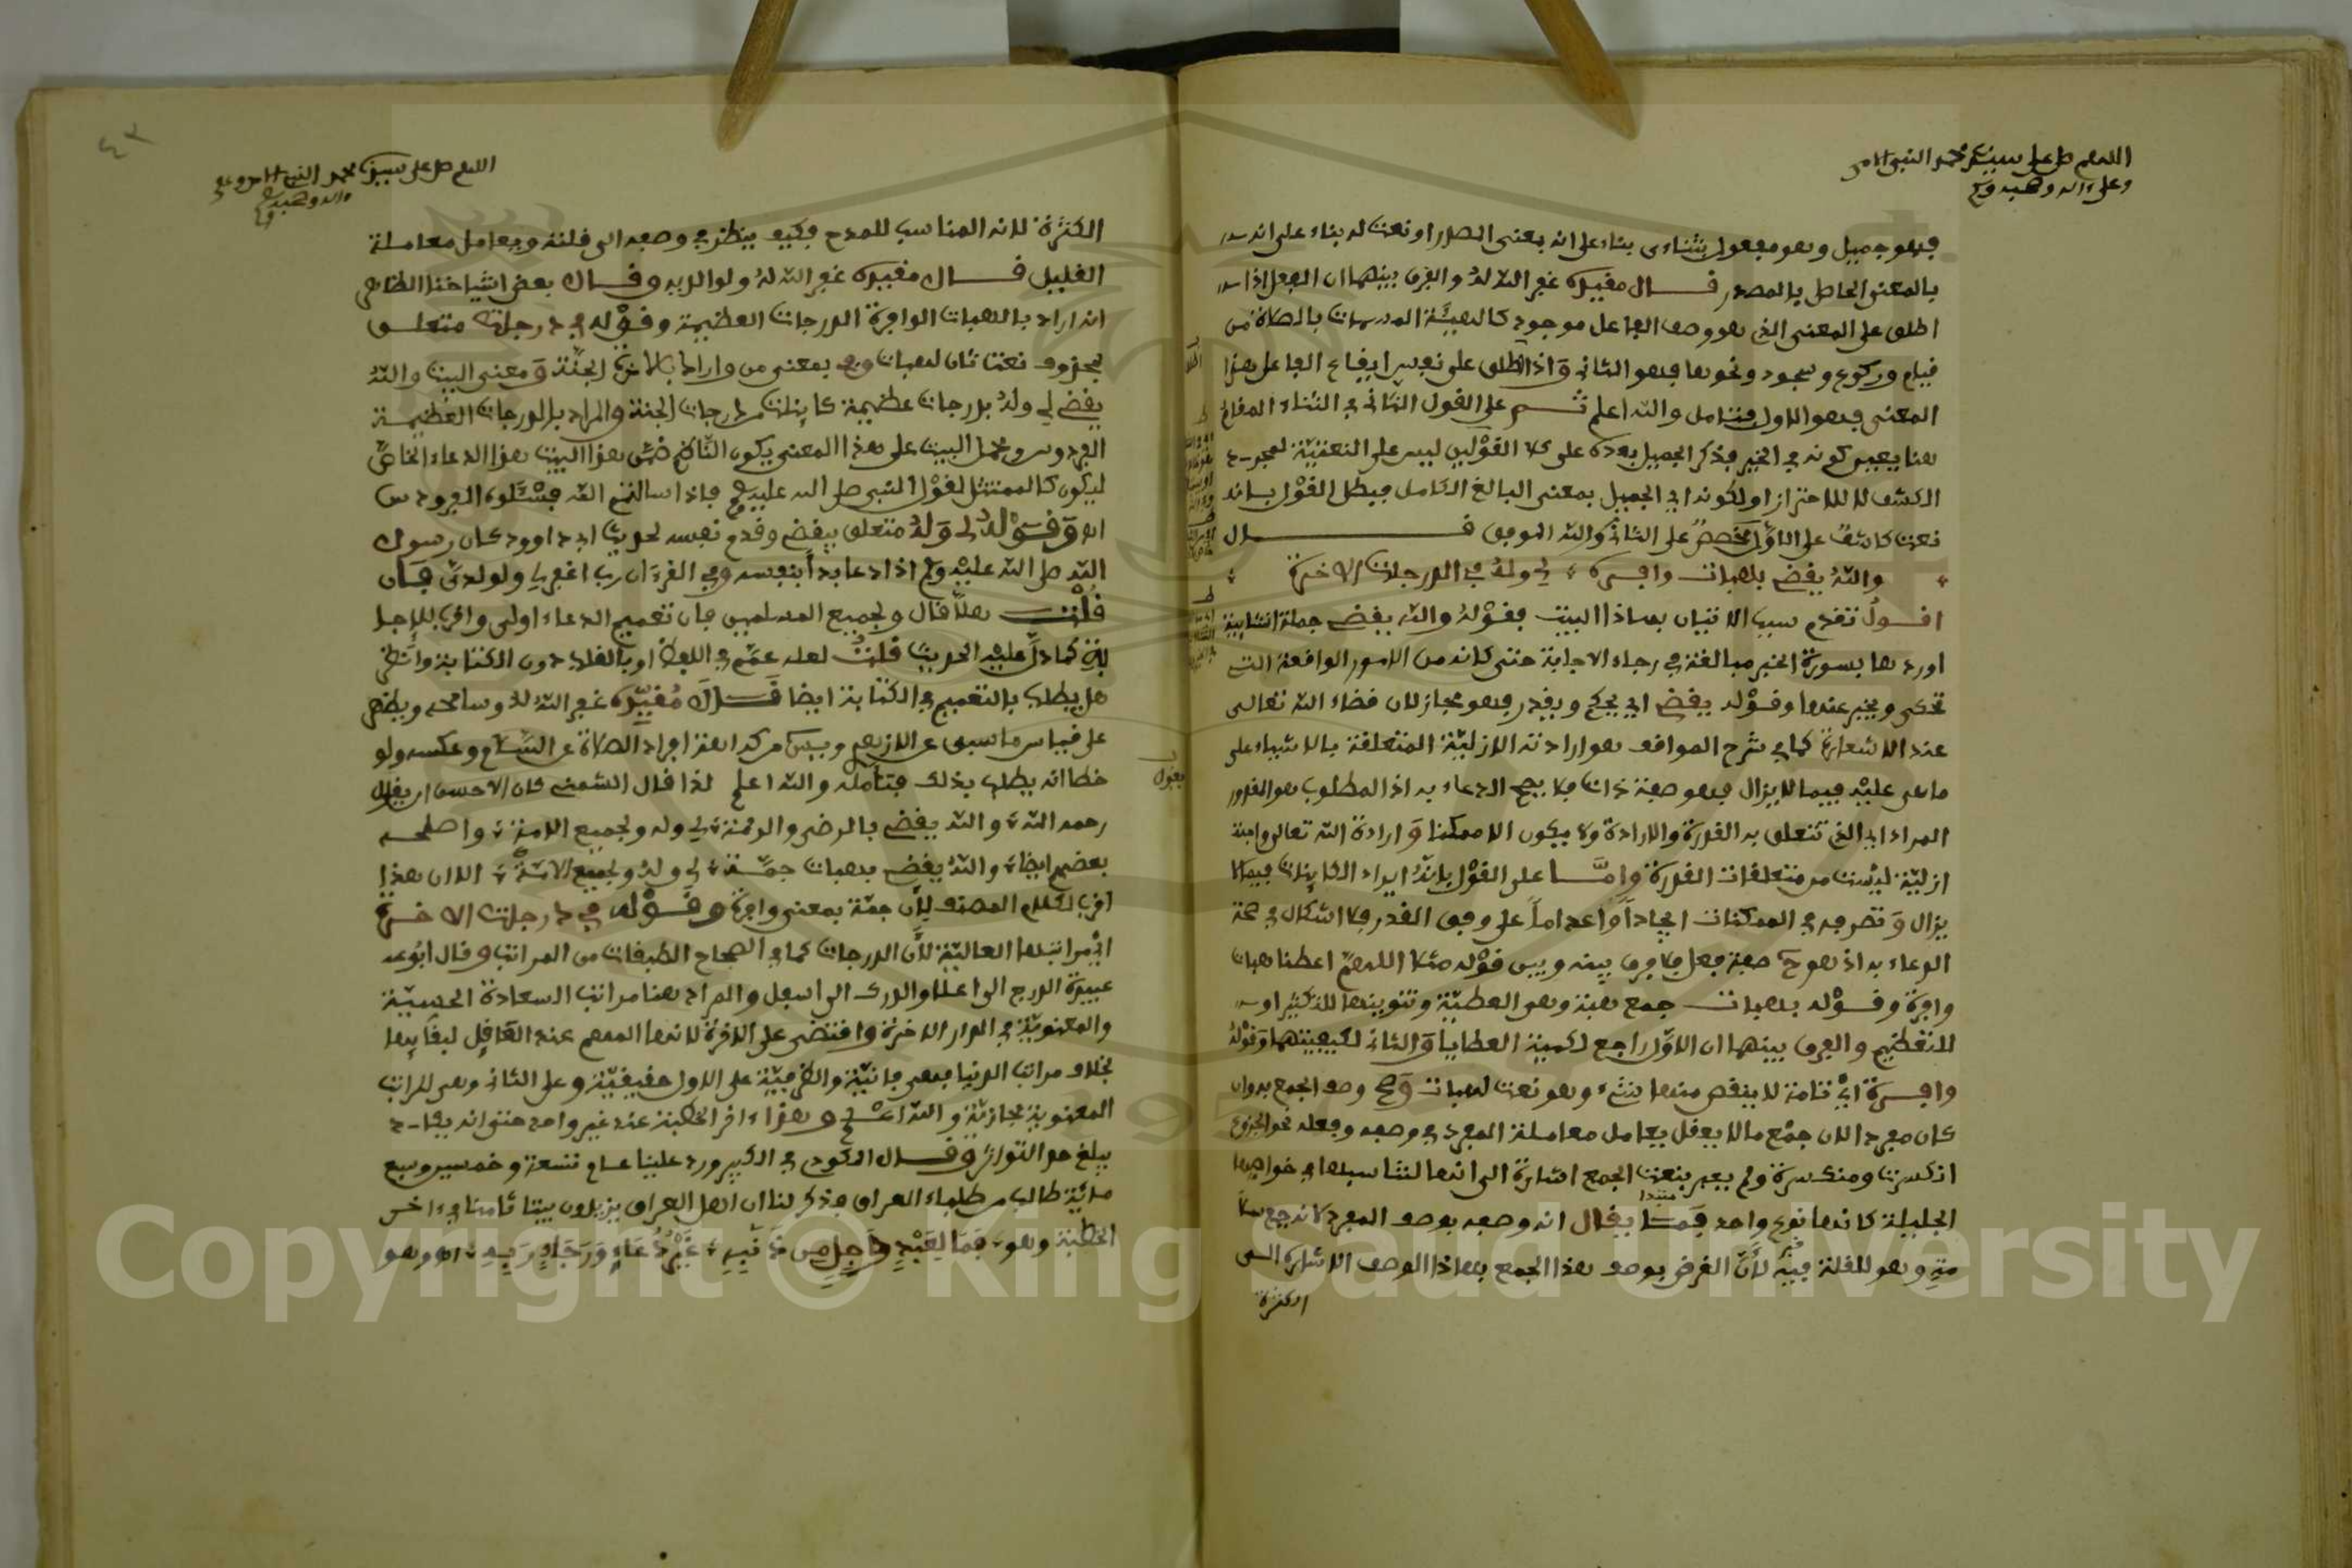 اللهم صل على سيدنا محمد النبي الامي
وعلى ءاله وصحبه وسلم
فهو جميل وهو مفعول بثناءى بناء على انه بمعنى المصدر او نعت له بناء على انه
بالمعنى الحاصل بالمصدر قال مقيده غفر الله له والفرق بينهما ان الفعل اذا
اطلق على المعنى الذي هو وصف الفاعل موجود كالهيئة المسماة بالصلاة من
قيام وركوع وسجود ونحوها فهو الثاني وَاذا اطلق على نفس ايقاع الفاعل هذا
المعنى فهو الاول فتامل والله اعلم ثم على القول الثاني في الثناء
هنا يتعين كونه في الخير فذكر الجميل بعده على كلا القوْلين ليس على النعتيّة لمجرد
الكشف لا للاحتراز او لكونه اي الجميل بمعنى البالغ الكامل فبطل القوْل بانه
نعت كاشفٌ على الاوّل مخصصٌ على الثاني والله الموفق قال
والله يقضي بهبات وافره لي وله في درجات الاخرة
اقولُ تقدم سبب الاتيان بهاذا البيت فقوْلهُ والله يقضي جملة انشايية
اوردها بصورة الخبر مبالغة في رجاء الاجابة حتى كانه من الامور الواقعة التي
تحكى ويخبر عنها وقوْله يقضي اي يحكم ويقدر فهو مجاز لان قضاء الله تعالى
عند الاشعارة كما في شرح المواقف هو ارادته الازليّة المتعلقة بالاشياء على
ما هي عليْه فيما لا يزال فهو صفة ذات فلا يصح الدعاء به اذ المطلوب هو القدور
المراد اي الذي تتعلق به القدرة والارادة ولا يكون الا ممكنا وَارادة الله تعالى واجبة
ازليّة ليْست من متعلقات القدرة وامَّا على القوْل بانّهُ ايراد الكاينات فيما لا
يزال وَتصرفه في الممكنات ايجاداً وَاعداماً على وفق القدر فلا اشكال في صحة
الدعاء به اذ هو ح صفة فعل فلا فرق بينه وبين قوْله مثلا اللهمّ اعطنا هبات
وافرة وقوْله بهبات جمع هبة وهي العطيّة وتنوينها للتكثير او
للتعظيم والفرق بينهما ان الاوّل راجع لكمية العطايا وَالثاني لكيفيتهما وَقوْلهُ
وافرة ايْ تامة لا ينقص منها شيء وهو نعت لهبات وَصح وصف الجمع به وان
كان مفردا لان جمْع ما لا يعقل يعامل معاملة المفرد في وصفه وفعله نحو الجزوع
انكسرت ومنكسرة ولم يعبر بنعت الجمع اشارة الى انها لتناسبها في خواصها
الجليلة كانها نوع واحد فمَا يقال انه وصفه بوصف المفرد كانه جمع سلا
مةٍ وهو للقلة فيْه لأنَّ الغرض بوصف هذا الجمع بهاذا الوصف الاشارة الى
الكثرة
يقول
٤٣
اللهم صل على سيدنا محمد النبي الامي وعلى
ءاله وصحبه وسلم
الكثرة لانه المناسب للمدح فكيف ينظر في وصفه الى قلته ويعامل معاملة
القليل قال مقيده غفر الله لهُ ولوالديه وقال بعض اشياخنا الظاهر
انه اراد بالهبات الوافرة الدرجات العظيمة وقوْله في درجات متعلق
بمحذوف نعت ثان لهبات وفي بمعنى من واراد بالاخرة الجنّة وَمعنى البيت والله
يقضي لي ولهُ بدرجات عظيمة كاينات من درجات الجنة والمراد بالدرجات العظيمة
الفردوس وبحمل البيت على هذا المعنى يكون النّاظم خصّ هذا البيت هذا الدعاء الخاصّ
ليكون كالممتثل لقوْل النبي صلى الله عليه وسلم فاذا سالتم الله فسْئلوه الفردوس
اه وَقوْلهُ لي وَلهُ متعلق بيقضي وقدم نفسه لحديث ابي داوود كان رسول
الله صلى الله عليْه وسلم اذا دعا بدأ بنفسه وفي القرءان رب اغفر لي ولوالديّ فإن
قلْت هلّا قال ولجميع المسلمين فان تعميم الدعاء اولى واقرب للاجا
بة كما دلّ عليْه الحديث قلتُ لعله عمّم في اللفظ او بالقلب دون الكتابة وانظر
هل يطلب بالتعميم في الكتابة ايضا قَالَ مُقيّده غفر الله لهُ وسامحه ويظهر
على قياس ما سبق عن الازهر ويس من كراهة افراد الصلاة عن السّلام وعكسه ولو
خطا انه يطلب بذلك فتأمله والله اعلم لذا قال الشمني كان الاحسن ان يقال
رحمه الله والله يقضي بالرضى والرحمة لي وله ولجميع الامة واصلحه
بعضهم ايضا والله يقضي بهبات جمّة لي ولهُ ولجميع الامّة الا ان هذا
اقرب لكلام المصنف لأن جمّة بمعنى وافرة وقوْله في درجات الاخرة
ايْ مراتبها العاليّة لأن الدرجات كما في الصحاح الطبقات من المراتب وقال ابُو عـ
عبيدة الدرج الى اعلا والدرك الى اسفل والمراد هنا مراتب السعادة الحسيّة
والمعنويّة في الدار الاخرة واقتصر على الاخرة لانها المهم عند العَاقِل لبقايها
بخلاف مراتب الدنيا فهي فانيّة والظرفيّة على الاول حقيقيّة وعلى الثاني وهي المراتب
المعنوية مجازيّة والله اعْلم وهذا ءاخر الخطبة عند غير واحد حتى انه يكاد
يبلغ حد التواتر وقال المكودي في الكبير ورد علينا عام تسعة وخمسين وسبع
مايّة طالب من طلباء العراق فذكر لنا ان اهل العراق يزيدون بيتا ثامنا في ءاخر
الخطبة وهو فَمَا لِعَبْدٍ وَاجِلٍ مِن ذَنْبِهِ غَيْرُ دُعَاءٍ وَرَجَاءِ رَبِهِ اه وهو